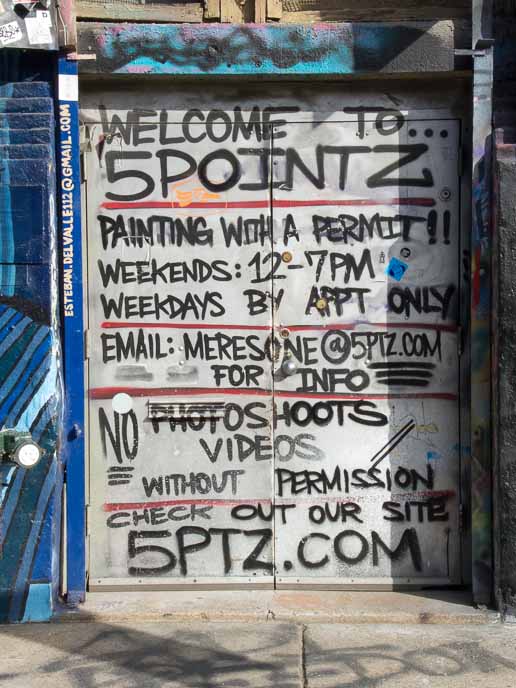 WELCOME TO...
5POINTZ
PAINTING WITH A PERMIT!!
WEEKENDS: 12-7PM
WEEKDAYS BY APPT ONLY
EMAIL: MERESONE@5PTZ.COM
FOR INFO
NO PHOTOSHOOTS
VIDEOS
WITHOUT PERMISSION
CHECK OUT OUR SITE
5PTZ.COM
ESTEBAN.DELVALLE112@GMAIL.COM